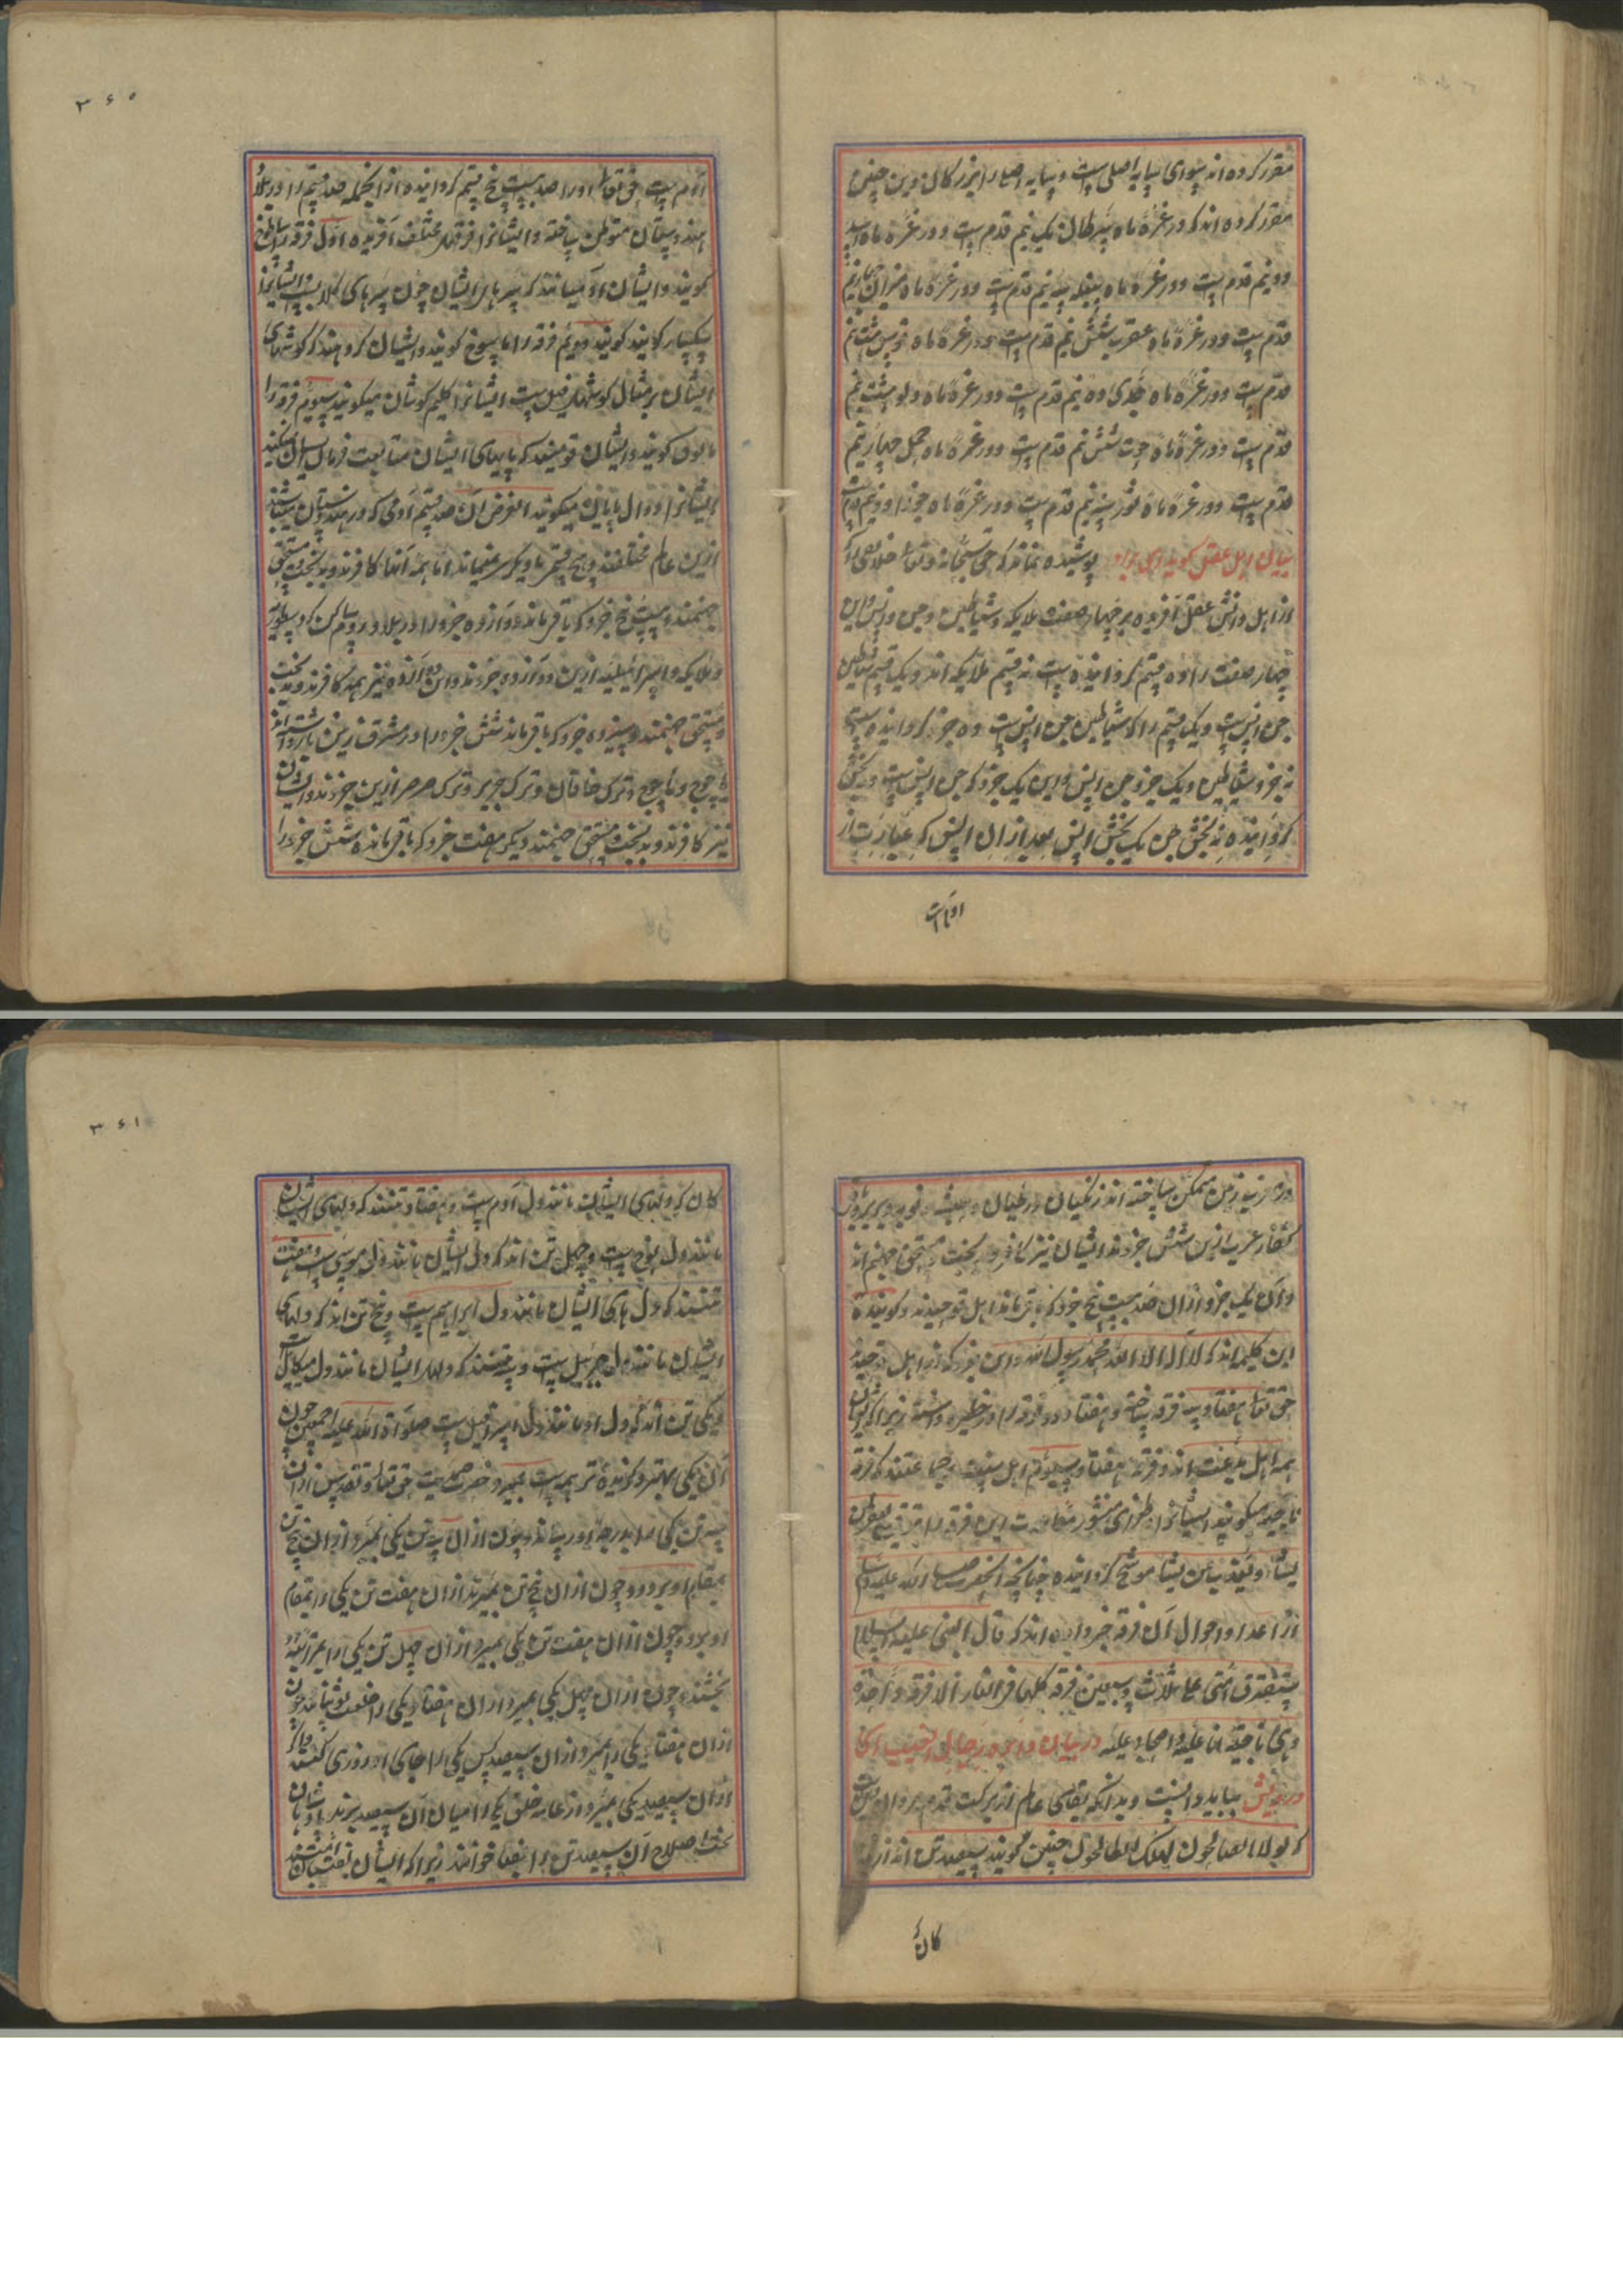 مقرر کرده اند سوای سایه اصلی است و سایه اصلی را بزرگان دین چنین
مقرر کرده اند که در غرهٔ ماه سرطان یک نیم قدم است و در غرهٔ ماه اسد
دو نیم قدم است و در غرهٔ ماه سنبله سه نیم قدم است و در غرهٔ ماه میزان چهار نیم
قدم است و در غرهٔ ماه عقرب شش نیم قدم است و در غرهٔ ماه قوس هشت نیم
قدم است و در غرهٔ ماه جدی ده نیم قدم است و در غرهٔ ماه دلو هشت نیم
قدم است و در غرهٔ ماه حوت شش نیم قدم است و در غرهٔ ماه حمل چهار نیم
قدم است و در غرهٔ ماه ثور سه نیم قدم است و در غرهٔ ماه جوزا دو نیم قدم است
بیان اهل عقل گوید ای برادر پوشیده نماند که حق سبحانه و تعالی خلایق را که
از اهل دانش عقل آفریده بر چهار صفت ملایکه و شیاطین و جن و انس و این
چهار صفت را ده قسم گردانیده است نه قسم ملایکه اند و یک قسم شیاطین
جن انس است و یک قسم را که شیاطین جن انس است ده جزو گردانیده است
نه جزو شیاطین و یک جزو جن انس و این یک جزو که جن انس است ده بخش
گردانیده نه بخش جن یک بخش انس بعد ازان انس که عبارت از
اولادت
۳۶۵
آدم است حق تعالی او را صد بیست پنج قسم گردانیده از انجمله صد قسم را در بلاد
هندوستان متوطن ساخته و ایشانرا فرقهای مختلف آفریده اول فرقه را ساطوخ
گویند و ایشان آدمیانند که سرهای ایشان چون سرهای کلاب است و ایشانرا
سکسار کلابند گویند دویم فرقه را ماسوخ گویند و ایشان گروهند که گوشهای
ایشان بر مثال گوشهای فیل است ایشانرا کلیم گوشان میگویند سیوم فرقه را
مالوق گویند و ایشان قومیند که پایهای ایشان متابعت فرمان ایشان نکنند
ایشانرا دوال پایان میگویند الغرض آن صد قسم آدمی که در هندوستان میباشند
ازین عالم مختلفند و هیچ قسم با دیگر نمی مانند اما همه آنها کافرند و بدبخت و مستحق
جهنمند و بیست پنج جزو که باقی ماند دوازده جزو را در بلاد روم ساکن کرد چون
و ملایکه و اسرائیلیه ازین دوازده جزوند و این دوازده نیز همه کافرند و بدبخت
و مستحق جهنمند و سیزده جزو که باقی ماند شش جزو را در مشرق زمین بازداشته اند
یاجوج و ماجوج و ترک خاقان و ترک خزر و ترک صرصر ازین جزوند و ایشان
نیز کافرند و بدبخت مستحق جهنمند دیگر هفت جزو که باقی مانده شش جزو را
در مغرب زمین ممکن ساخته اند زنگیان و زطیان و حبشه و نوبه و بربر و
کفار عرب ازین شش جزوند ایشان نیز کافر و بدبخت مستحق جهنم اند
و آن یک جزو ازان صد بیست پنج جزو که باقی ماند اهل توحیدند و گوینده
این کلمه اند که لا اله الا الله محمد رسول الله و این جزو که از اهل توحیدند
حق تعالی هفتاد و سه فرقه ساخته و هفتاد و دو فرقه را در خطیره داشته زیرا که ایشان
همه اهل بدعت اند و فرقه هفتاد و سیوم اهل سنت و جماعتند که فرقه
ناجیه میگویند ایشانرا و طغرای منشور مغفرت این فرقه را مزین یغفر لمن
یشاء و یعذب من یشاء موشح گردانیده چنانچه آنحضرت صلی الله علیه و سلم
از اعداد و احوال آن فرقه خبر داده اند که قال النبی علیه السلام
ستفترق امتی علی ثلاث و سبعین فرقه کلها فی النار الا فرقه واحدة
و هی ناجیة انا علیه و اصحابی علیه در بیان دایره رجال الغیب ای
درویش بباید دانست و بدانکه بقای عالم از برکت قدم مردان
که لولا الصالحون لهلک الطالحون چنین گویند سیصد تن اند از
کان
۳۶۱
کان که دلهای ایشان مانند دل آدم است و هفتاد تنند که دلهای ایشان
مانند دل نوح است و چهل تن اند که دل ایشان مانند دل موسی است و هفت
تنند که دلهای ایشان مانند دل ابراهیم است و پنج تن اند که دلهای
ایشان مانند دل جبرئیل است و سه تنند که دلهای ایشان مانند دل میکائیل است
و یکی تن اند که دل او مانند دل اسرافیل است صلواة الله علیه اجمعین چون
آن یکی بهتر و گزیده تر همه است بمیرد حضرت صمدیت حق تعالی و تقدس ازان
سه تن یکی را بدرجه او رساند و چون ازان سه تن یکی بمیرد ازان پنج تن
بمقام او برد و چون ازان پنج تن بمیرند ازان هفت تن یکی را بمقام
او برد و چون ازان هفت تن یکی بمیرد ازان چهل تن یکی را مرتبه او
بخشند و چون ازان چهل یکی بمیرد ازان هفتاد یکی را خلعت پوشانند چون
ازان هفتاد یکی را بمیرد ازان سیصد کس یکی را جای او روزی کنند و اگر
ازان سیصد یکی بمیرد از عامه خلق یکی را میان آن سیصد برند و ایشان
اصطلاح آن سیصد تن را نقبا خوانند زیرا که ایشان نقیبان امتند